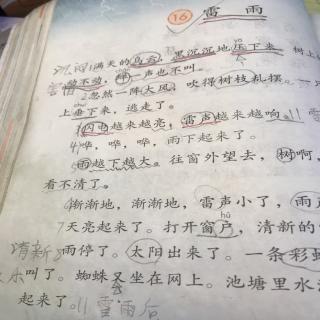 16 雷雨
满天的乌云,黑沉沉地压下来。树上
动不动,蝉一声也不叫。
忽然一阵大风,吹得树枝乱摆。一只
chuí
上垂下来,逃走了。
闪电越来越亮,雷声越来越响。
哗,哗,哗,雨下起来了。
雨越下越大。往窗外望去,树啊,
看不清了。
渐渐地,渐渐地,雷声小了,雨声
hù
天亮起来了。打开窗户,清新
清新 雨停了。太阳出来了。一条彩虹
叫了。蜘蛛又坐在网上。池塘里水
起来了。 雷雨后